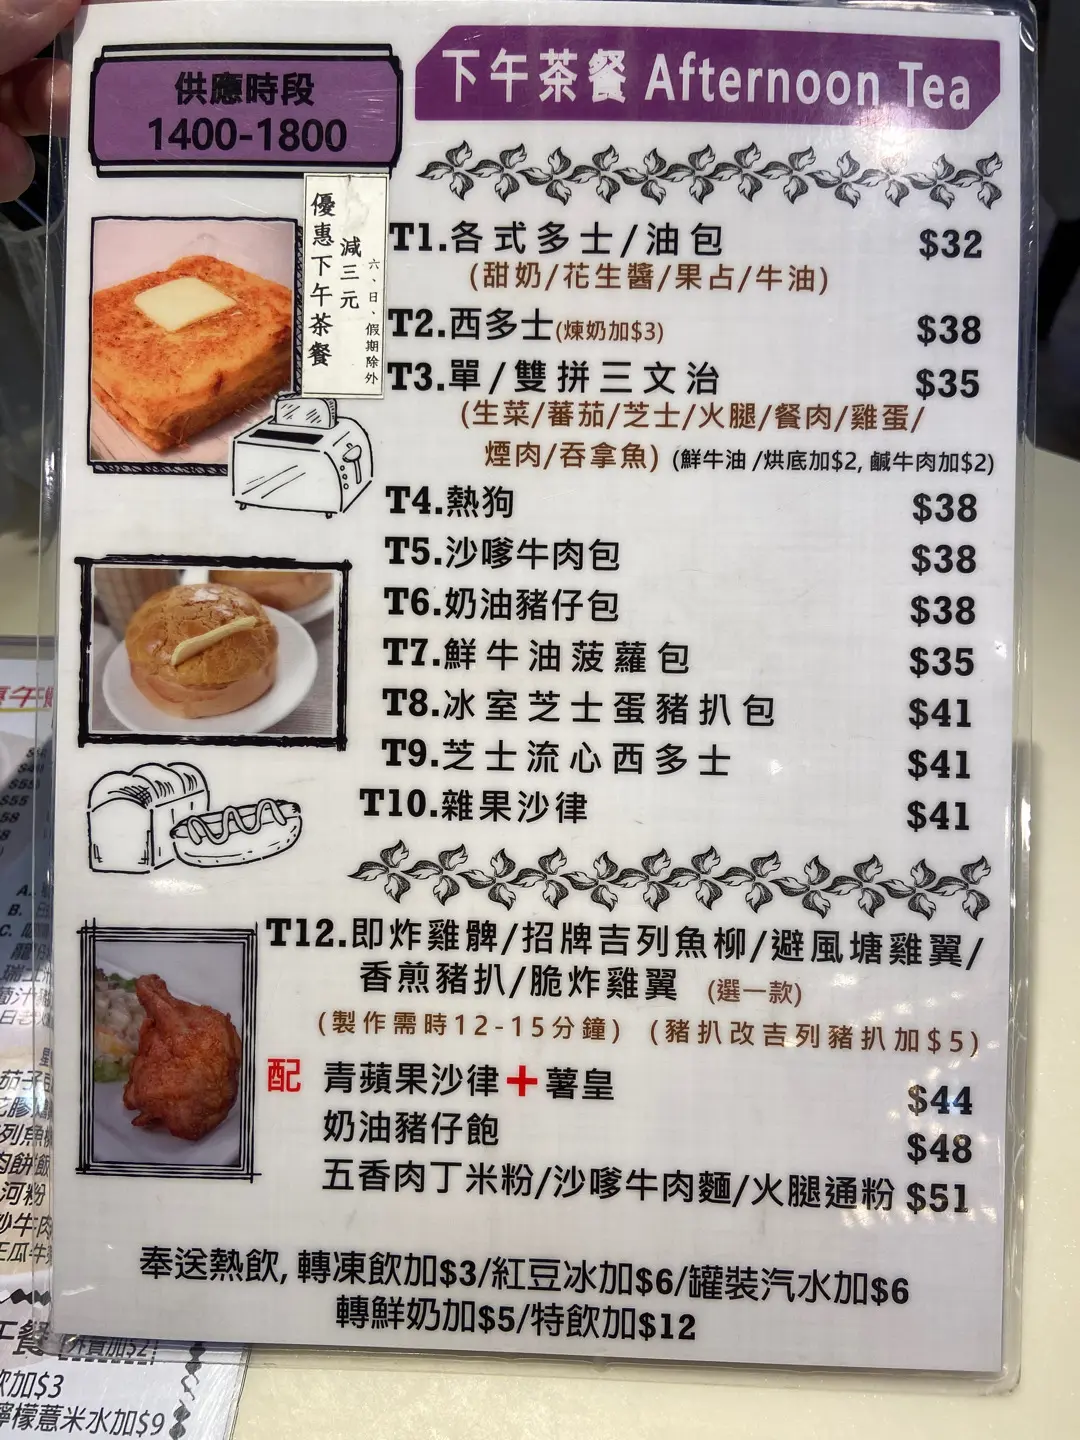 供應時段
1400-1800
下午茶餐 Afternoon Tea
優惠下午茶餐
減三元
六、日、假期除外
T1.各式多士/油包 $32
(甜奶/花生醬/果占/牛油)
T2.西多士(煉奶加$3) $38
T3.單/雙拼三文治 $35
(生菜/蕃茄/芝士/火腿/餐肉/雞蛋/
煙肉/吞拿魚) (鮮牛油 /烘底加$2, 鹹牛肉加$2)
T4.熱狗 $38
T5.沙嗲牛肉包 $38
T6.奶油豬仔包 $38
T7.鮮牛油菠蘿包 $35
T8.冰室芝士蛋豬扒包 $41
T9.芝士流心西多士 $41
T10.雜果沙律 $41
T12.即炸雞髀/招牌吉列魚柳/避風塘雞翼/
香煎豬扒/脆炸雞翼 (選一款)
(製作需時12-15分鐘) (豬扒改吉列豬扒加$5)
配 青蘋果沙律+薯皇 $44
奶油豬仔飽 $48
五香肉丁米粉/沙嗲牛肉麵/火腿通粉 $51
奉送熱飲, 轉凍飲加$3/紅豆冰加$6/罐裝汽水加$6
轉鮮奶加$5/特飲加$12
$55
$55
A.
B.
C.
河粉
午餐 外賣加$2
飲加$3
檸檬薏米水加$9